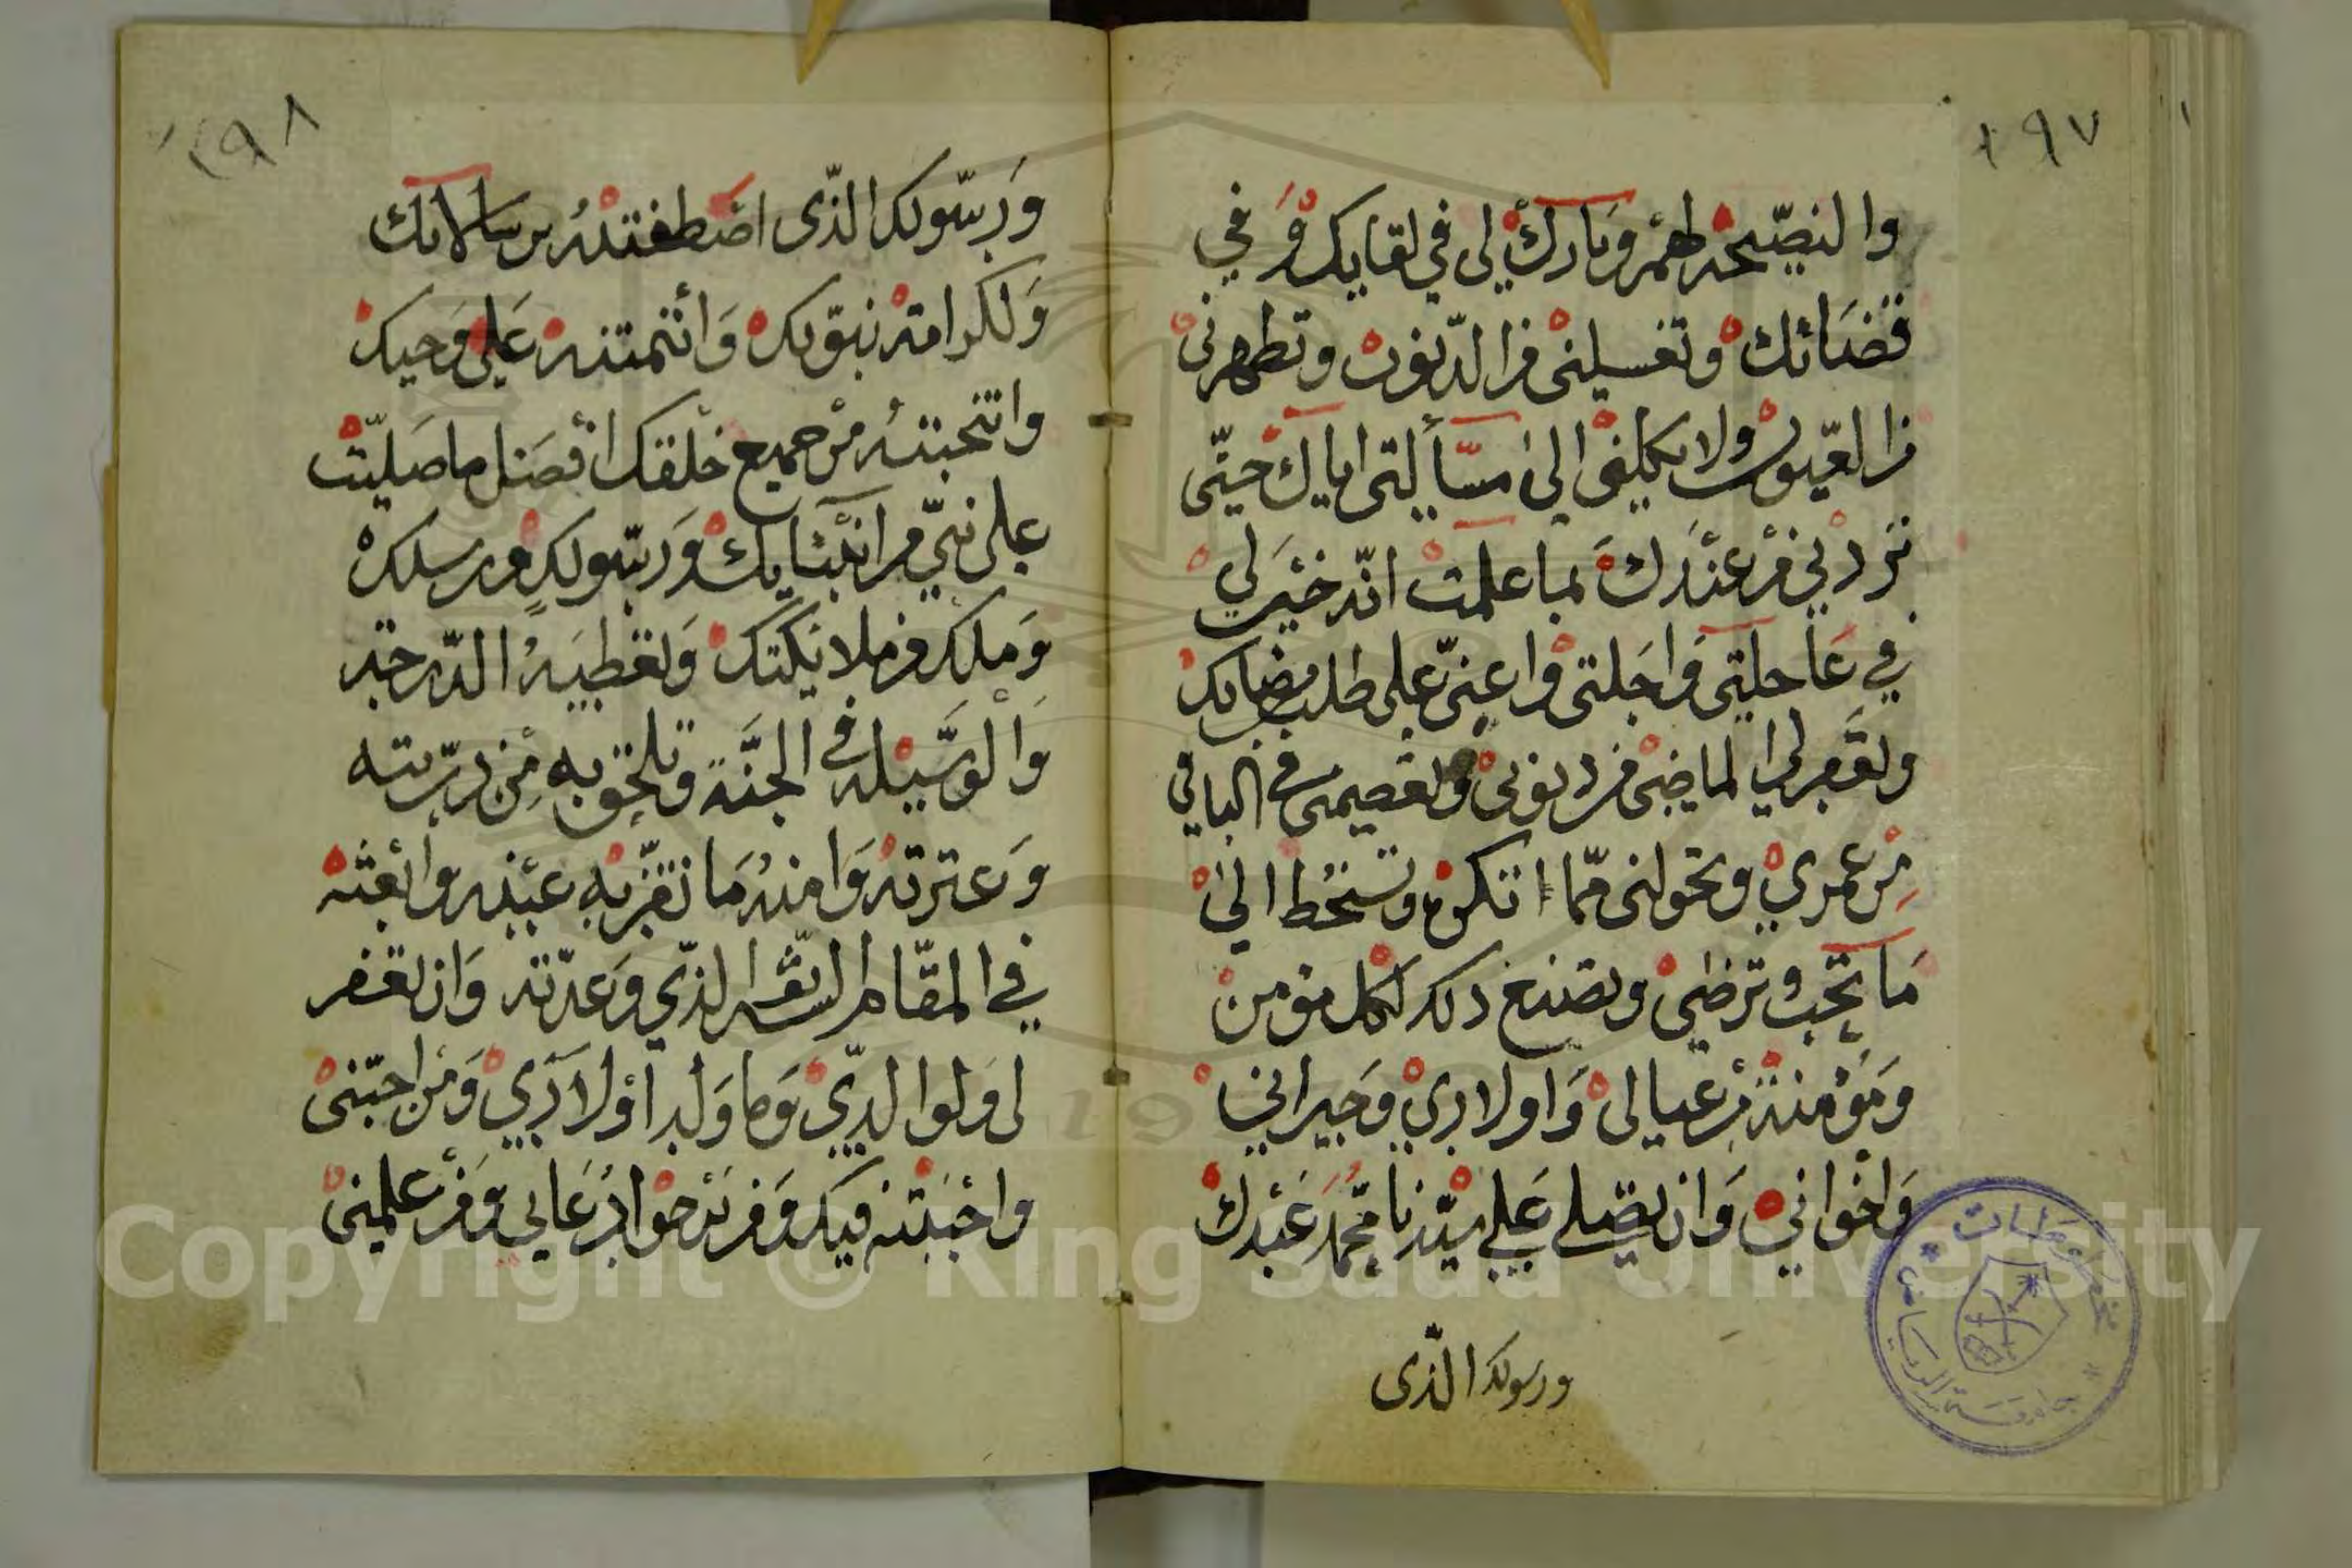 ١٩٧
والنصيحه لهم وبارك لي في لقايك وفي
قضائك وتغسلني من الذنوب وتطهرني
من العيوب ولا تكلفي الى مسألتي اياك حتى
تزدني من عندك بما علمت انه خير لي
في عاجلتي واجلتي واعني على طلب مرضاتك
وتغفر لي الماضي من ذنوبي وتعصمني في الباقي
من عمري وتحولني مما اتكره وتسخط الى
ما تحب وترضى وتصنع ذلك لكل مؤمن
ومؤمنة من عيالي واولادي وجيراني
واخواني وان تصلي على سيدنا محمد عبدك
ورسولك الذي
١٩٨
ورسولك الذي اصطفيته برسالاتك
ولكرامته نبوتك وائتمنته على وحيك
وانتخبته من جميع خلقك افضل ما صليت
على نبي من انبيايك ورسولك ورسلك
وملك من ملائكتك وتعطيه الدرجة
والوسيله في الجنة وتلحق به من ذريته
وعترته وامته ما تقر به عينه وابعثه
في المقام الذي وعدته وان تغفر
لي ولوالدي وما ولد اولادي ومن احبني
واحببته فيك ومن يرجوا دعايي ومن علمني
Copyright © King Saud University